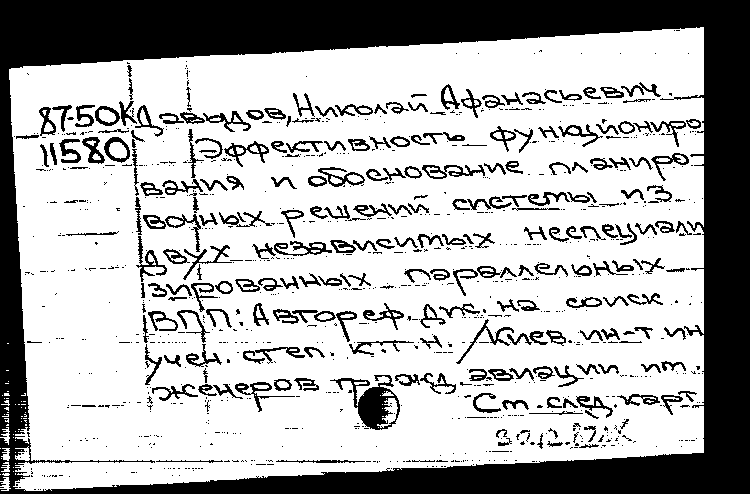 87-50К Давыдов, Николай Афанасьевич.
11580 Эффективность функциониро-
вания и обоснование планиро-
вочных решений системы из
двух независимых неспециали
зированных параллельных
ВПП: Автореф. дис. на соиск.
учен. степ. к.т.н. / Киев. ин-т ин
женеров гражд. авиации им.
См. след. карт